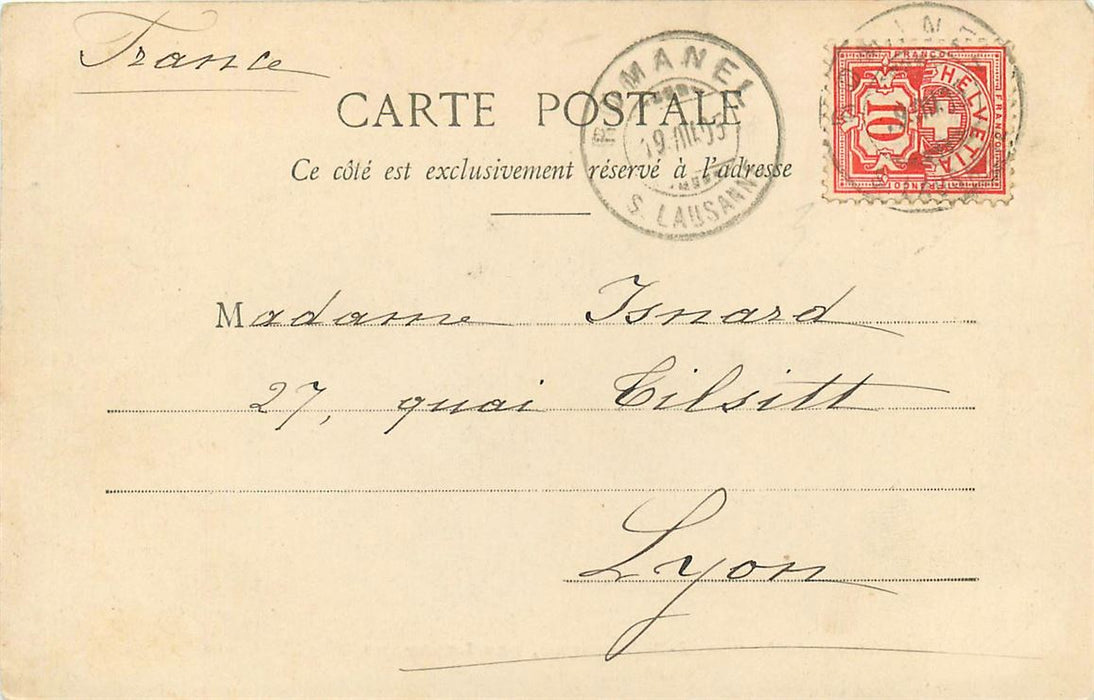 France
CARTE POSTALE
Ce côté est exclusivement réservé à l'adresse
ROMANEL
S. LAUSANNE
FRANCO
HELVETIA
10
FRANCO
FRANCO
Madame Isnard
27, quai Tilsitt
Lyon